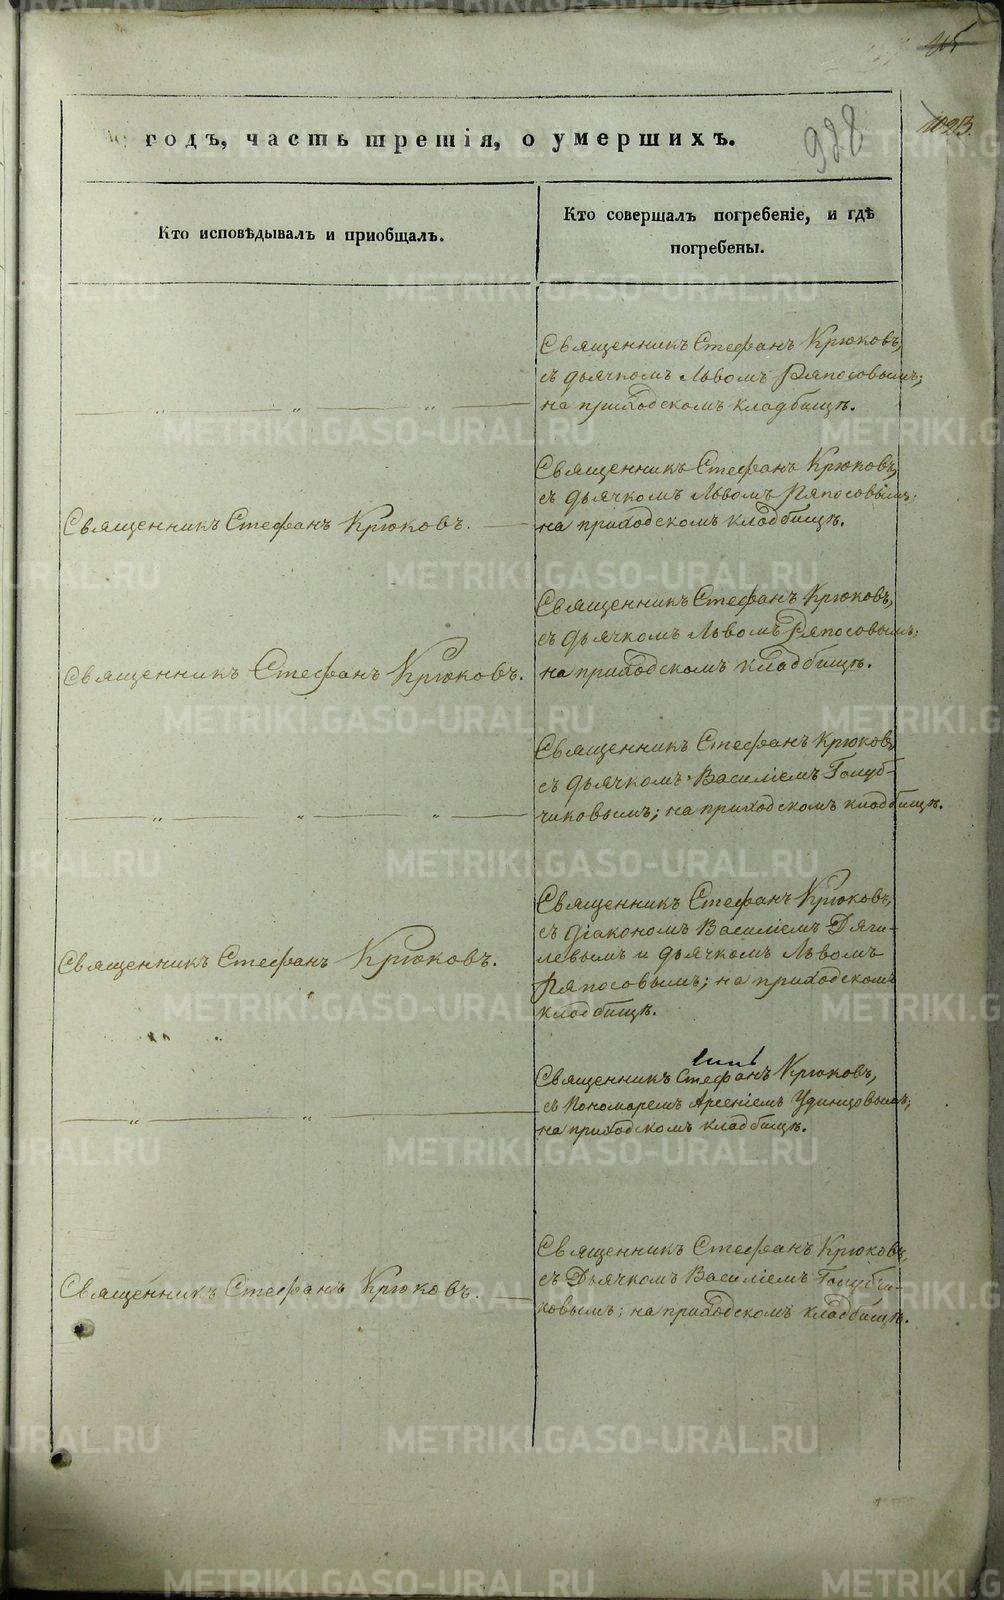 годъ, часть третія, о умершихъ.
928
1023.
Кто исповѣдывалъ и пріобщалъ.
Кто совершалъ погребеніе, и гдѣ
погребены.
Священникъ Стефанъ Крюковъ,
съ дьячкомъ Львомъ Ряпосовымъ;
на приходскомъ кладбищѣ.
Священникъ Стефанъ Крюковъ.
Священникъ Стефанъ Крюковъ,
съ дьячкомъ Львомъ Ряпосовымъ;
на приходскомъ кладбищѣ.
Священникъ Стефанъ Крюковъ.
Священникъ Стефанъ Крюковъ,
съ дьячкомъ Львомъ Ряпосовымъ;
на приходскомъ кладбищѣ.
Священникъ Стефанъ Крюковъ,
съ дьячкомъ Василіемъ Голуб-
чиковымъ; на приходскомъ кладбищѣ.
Священникъ Стефанъ Крюковъ.
Священникъ Стефанъ Крюковъ,
съ діакономъ Василіемъ Дяги-
левымъ и дьячкомъ Львомъ
Ряпосовымъ; на приходскомъ
кладбищѣ.
Священникъ Стефанъ Крюковъ,
съ Пономаремъ Арсеніемъ Удинцовымъ;
на приходскомъ кладбищѣ.
Священникъ Стефанъ Крюковъ.
Священникъ Стефанъ Крюковъ,
съ Дьячкомъ Василіемъ Голубчи-
ковымъ; на приходскомъ кладбищѣ.
METRIKI.GASO-URAL.RU